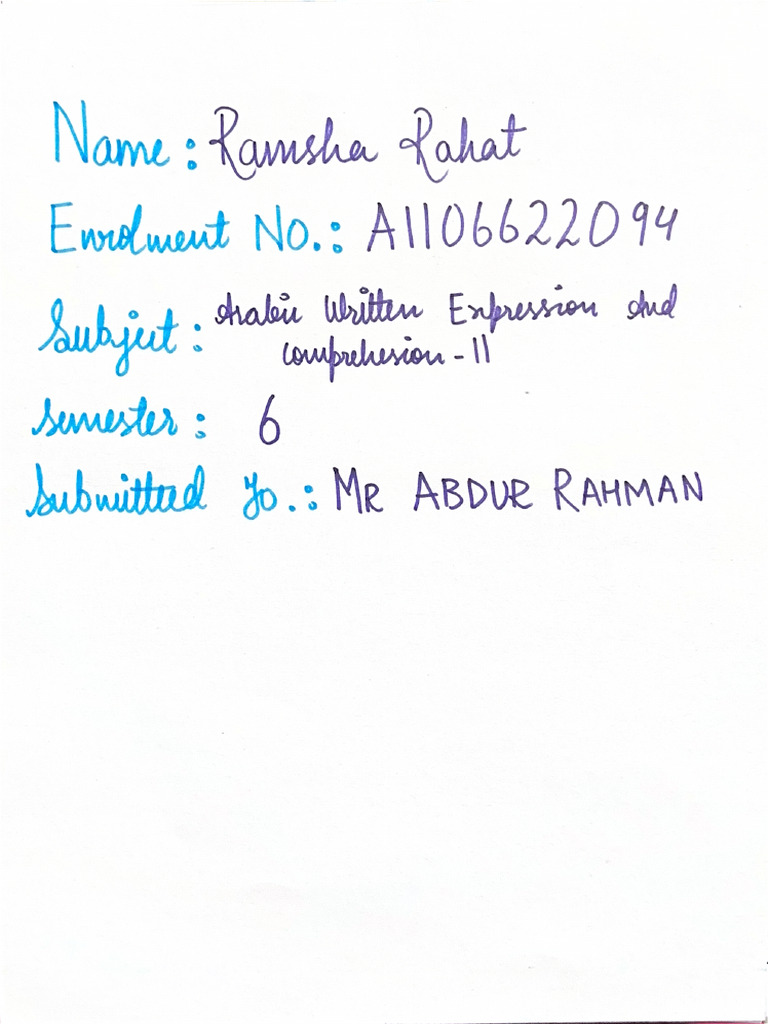 Name: Ramsha Rahat
Enrolment No.: A1106622094
Subject: Arabic Written Expression And
Comprehesion-II
Semester: 6
Submitted To.: MR ABDUR RAHMAN